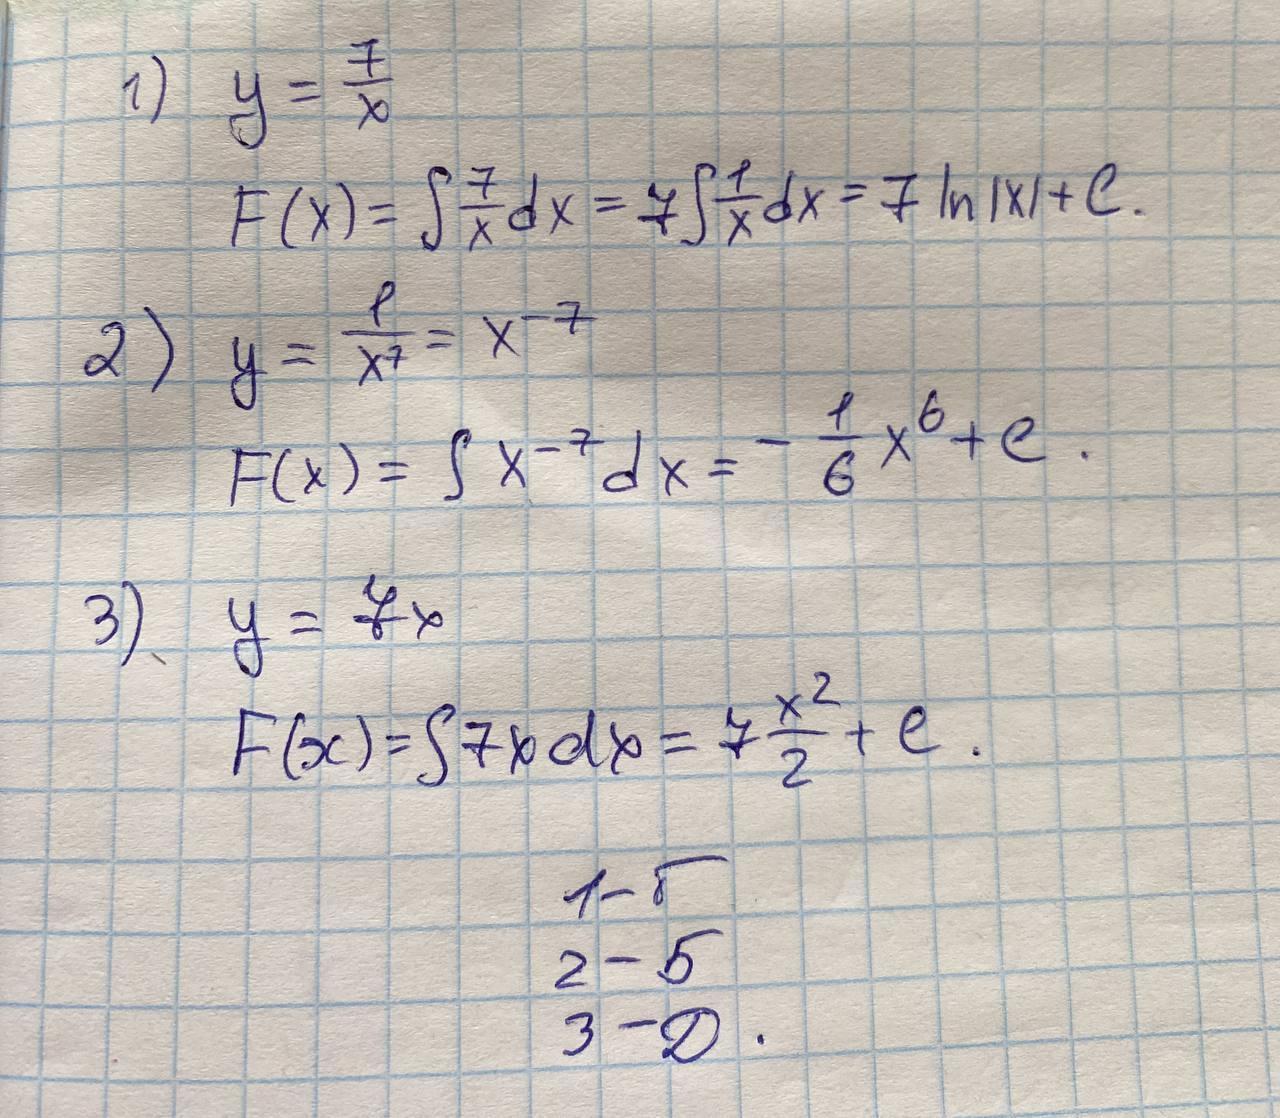 1) y = 7/x
F(x) = ∫ 7/x dx = 7 ∫ 1/x dx = 7 ln |x| + C.
2) y = 1/x⁷ = x⁻⁷
F(x) = ∫ x⁻⁷ dx = - 1/6 x⁶ + C.
3) y = 7x
F(x) = ∫ 7x dx = 7 x²/2 + C.
1 - Г
2 - Б
3 - Д.